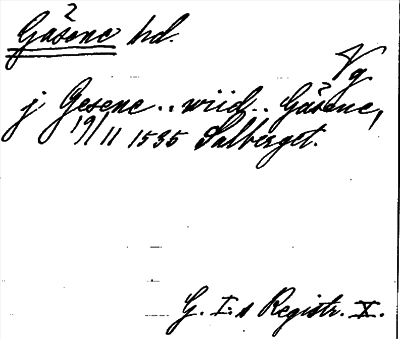 Gåsene hd.
Vg
j Gesene .. wiid .. Gåsene,
19/11 1535 Salberget.
G. I:s Registr. X.